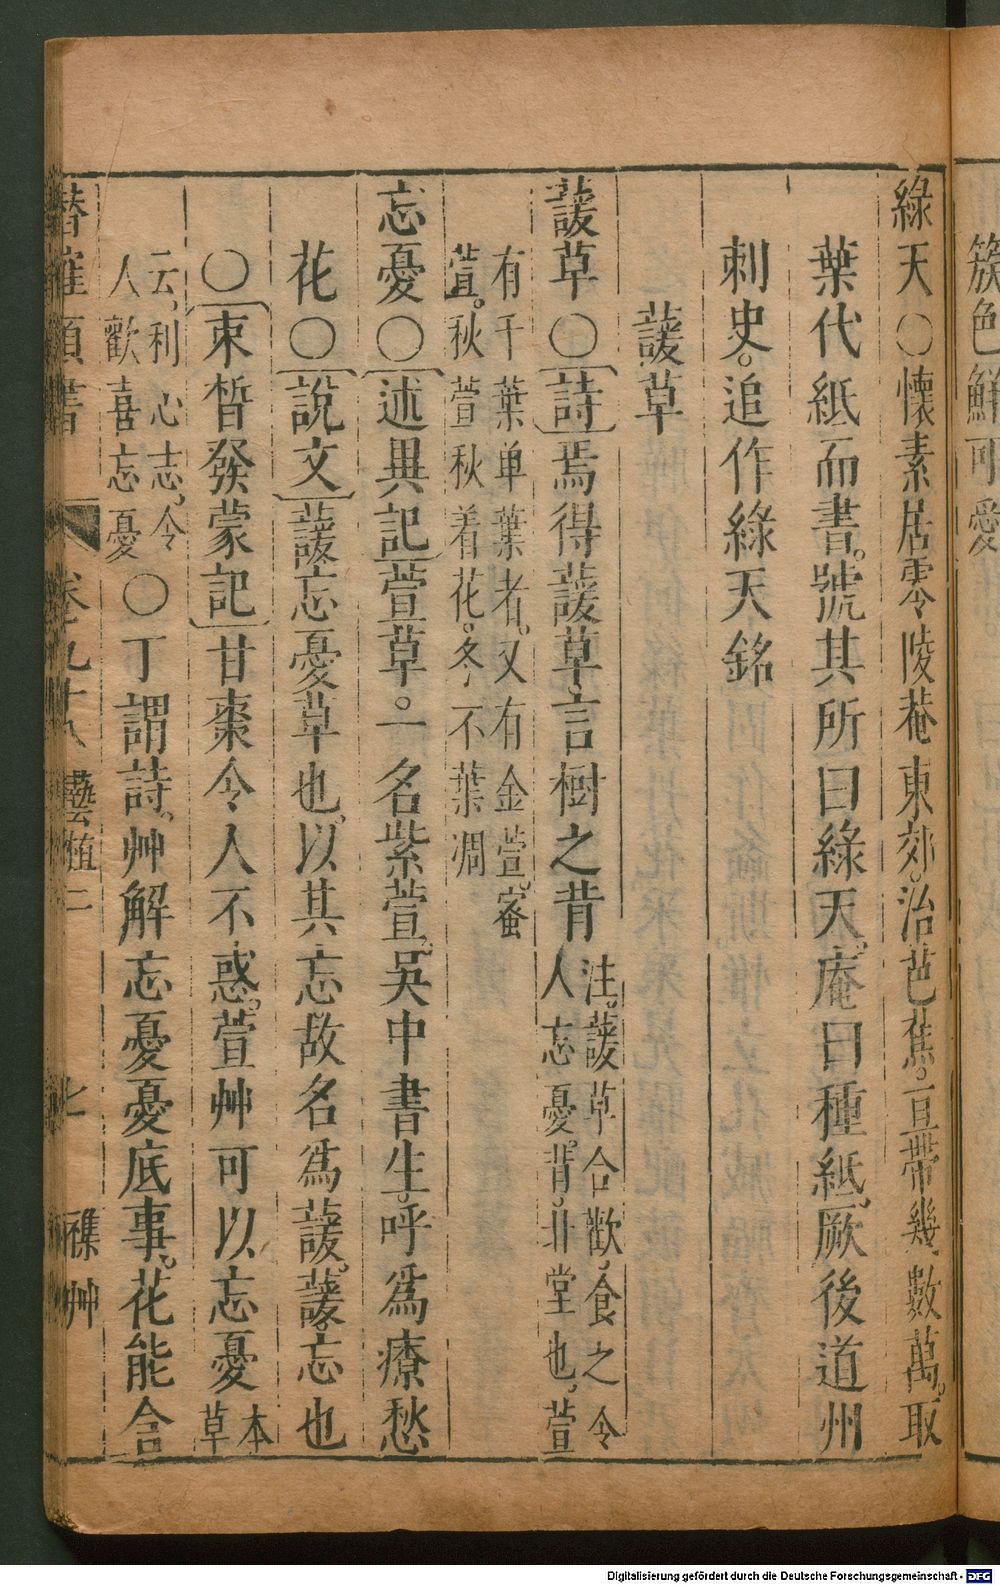 簇色鮮可愛
綠天〇懷素居零陵菴東郊。治芭蕉。亘帶幾數萬。取
葉代紙而書。號其所曰綠天。庵曰種紙。厥後道州
刺史。追作綠天銘
諼草
諼草〇詩焉得諼草。言樹之背
注。諼草合歡。食之令
人忘憂。背。北堂也。萱
有千葉单葉者。又有金萱。蜜
萱。秋萱秋着花。冬不葉凋
忘憂〇述異記萱草。一名紫萱。吳中書生。呼爲療愁
花〇說文諼忘憂草也。以其忘故名爲諼。諼忘也
〇束皙發蒙記甘棗令人不惑。萱艸可以忘憂
本
草
云。利心志。令
人歡喜忘憂
〇丁謂詩。艸解忘憂憂底事。花能含
潛確類書 卷之九十八 藝植二 七 襍艸
Digitalisierung gefördert durch die Deutsche Forschungsgemeinschaft - DFG